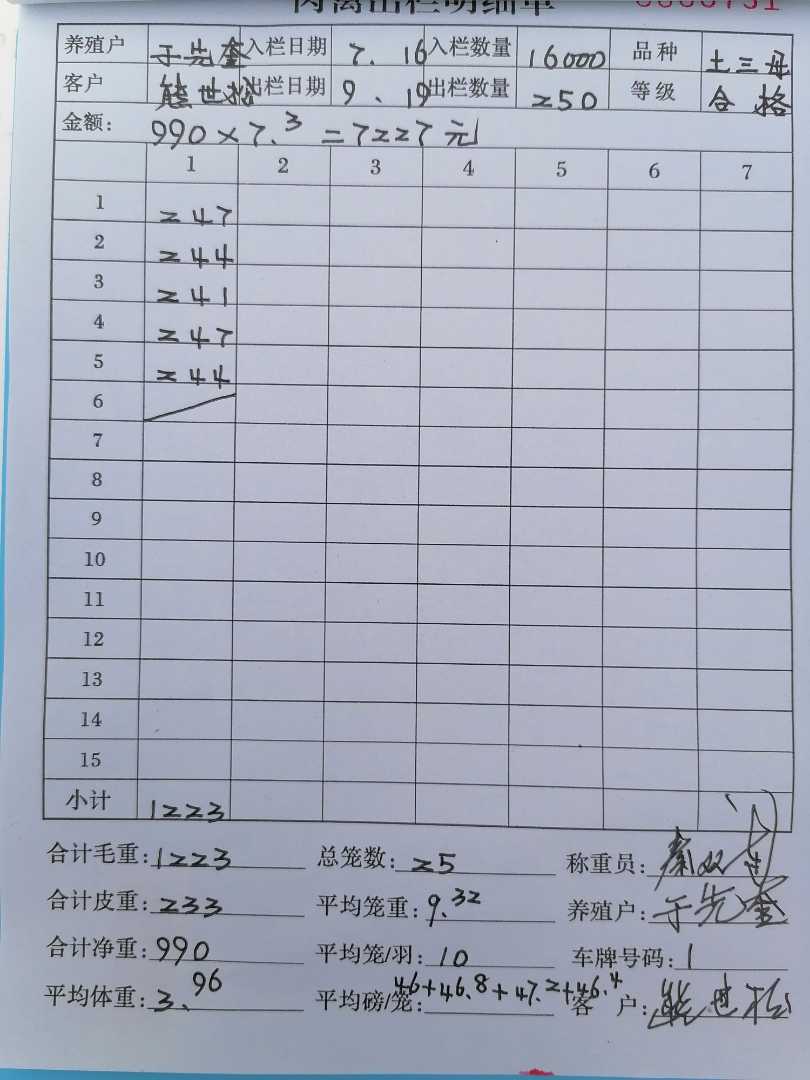 肉禽出栏明细单
养殖户 于先奎 入栏日期 7.16 入栏数量 16000 品种 土三母
客户 熊世松 出栏日期 9.19 出栏数量 250 等级 合格
金额: 990×7.3=7227元
1 2 3 4 5 6 7
1 247
2 244
3 241
4 247
5 244
6
7
8
9
10
11
12
13
14
15
小计 1223
合计毛重:1223 总笼数:25 称重员:
合计皮重:233 平均笼重:9.32 养殖户:于先奎
合计净重:990 平均笼/羽:10 车牌号码:1
平均体重:3.96 平均磅/笼:46+46.8+47.2+46.4 客户:熊世松